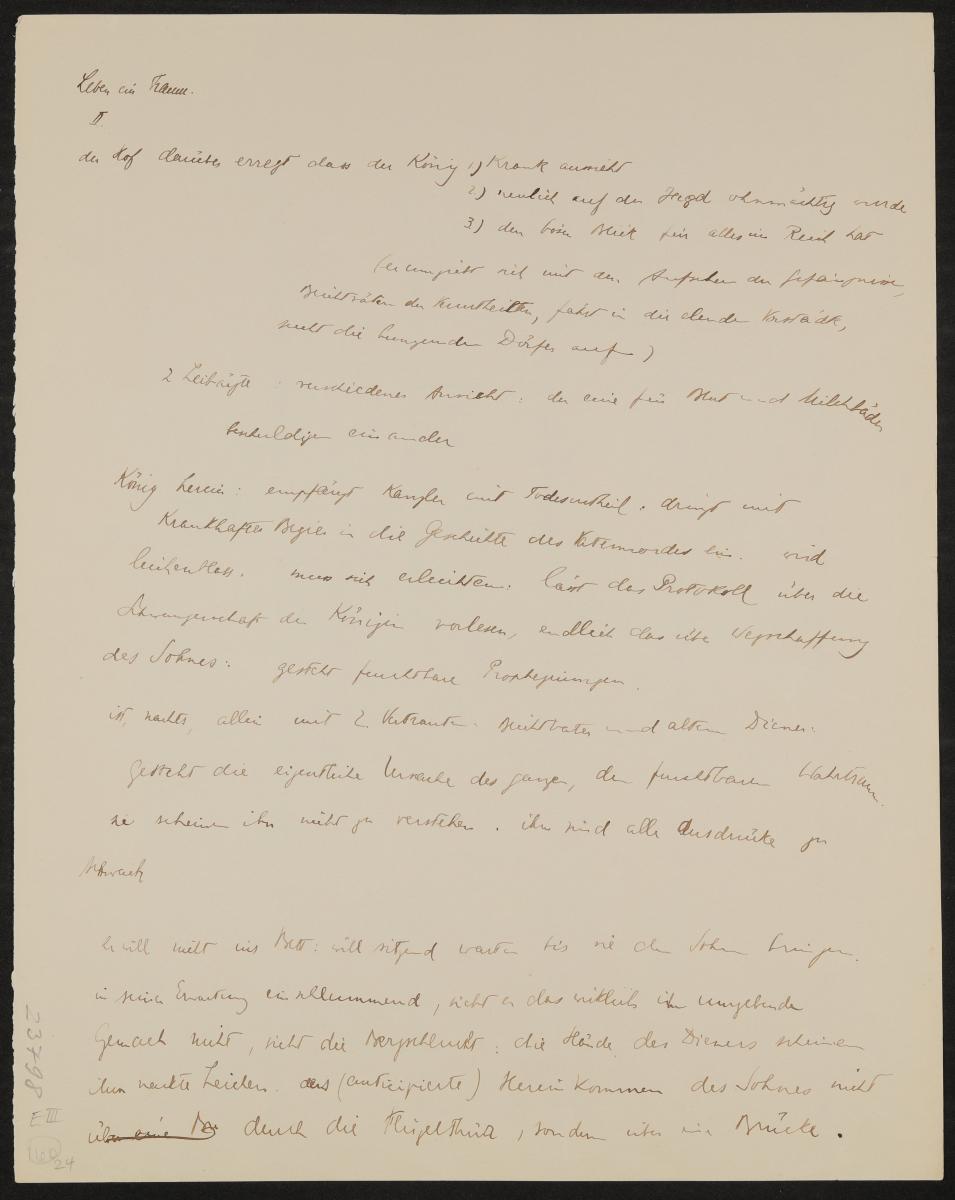 Leben ein Traum.
II.
der Hof darüber erregt dass der König 1) Krank aussieht
2) neulich auf der Jagd ohnmächtig wurde
3) den bösen Blick für alles im Reich hat
(er umgiebt sich mit den Aufsehern der Gefängnisse,
Beichtvätern der, fährt in die elenden Vorstädte,
sucht die hungernden Dörfer auf)
2 Leibärzte : verschiedener Ansicht: der eine für Blut und Milchbäder
beschuldigen einander
König herein: empfängt Kanzler mit Todesurtheil. dringt mit
Krankhafter Begier in die Geschichte des Vatermordes ein. wird
leichenblass. muss sich erleichtern: lässt das Protokoll über die
Schwangerschaft der Königin vorlesen, endlich das über Wegschaffung
des Sohnes: gesteht furchtbare Prophezeiungen.
ist, nachts, allein mit 2 Vertrauten. Beichtvater und altem Diener:
gesteht die eigentliche Ursache des ganzen, den furchtbaren Wahrtraum.
sie scheinen ihn nicht zu verstehen. ihm sind alle Ausdrücke zu
schwach
Er will nicht ins Bett: will sitzend warten bis sie den Sohn bringen.
in seiner Erwartung einschlummernd, sieht er das wirklich ihn umgebende
Gemach nicht, sieht die Bergschlucht: die Hände des Dieners scheinen
ihm nackte Leichen. das (anticipierte) Hereinkommen des Sohnes nicht
über eine Br durch die Flügelthür, sondern über eine Brücke.
23798
E III
24